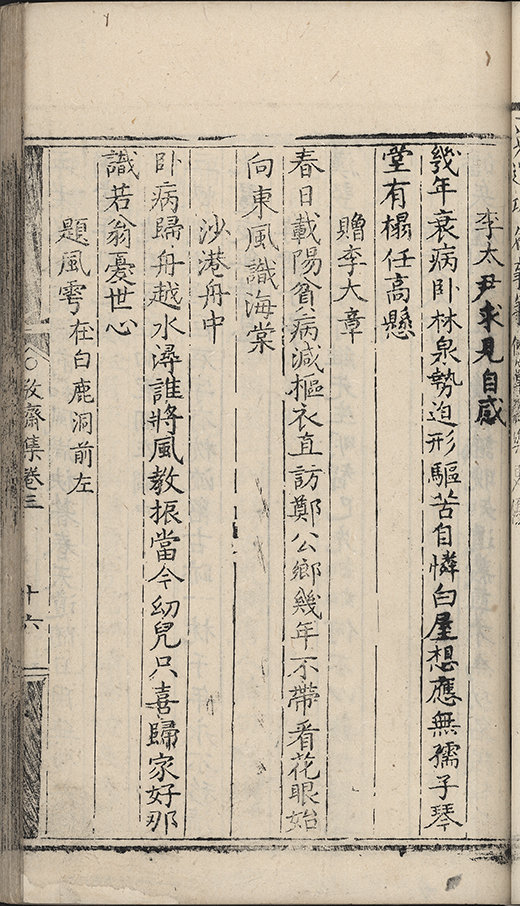 李太尹來見自感
幾年衰病卧林泉勢迫形驅苦自憐白屋想應無孺子琴
堂有榻任高懸
贈李大章
春日載陽貧病減樞衣直訪鄭公鄉幾年不帶看花眼始
向東風識海棠
沙港舟中
卧病歸舟越水潯誰將風教振當今幼兒只喜歸家好那
識若翁憂世心
題風雩在白鹿洞前左
敬齋集卷三 十六